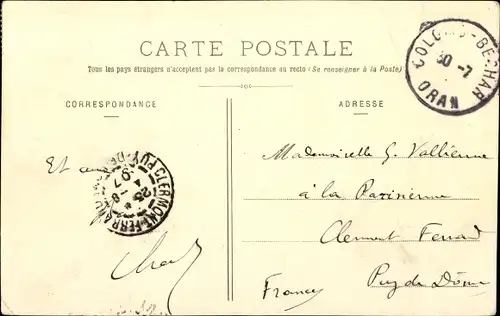 CARTE POSTALE
Tous les pays étrangers n'acceptent pas la correspondance au recto (Se renseigner à la Poste)
CORRESPONDANCE
ADRESSE
COLOMB-BECHAR
30 -7
ORAN
Et
CLERMONT-FERRAND
PUY-DE-DOME
Mademoiselle G. Vallienne
à la Parisienne
Clermont Ferrand
Puy de Dôme
France